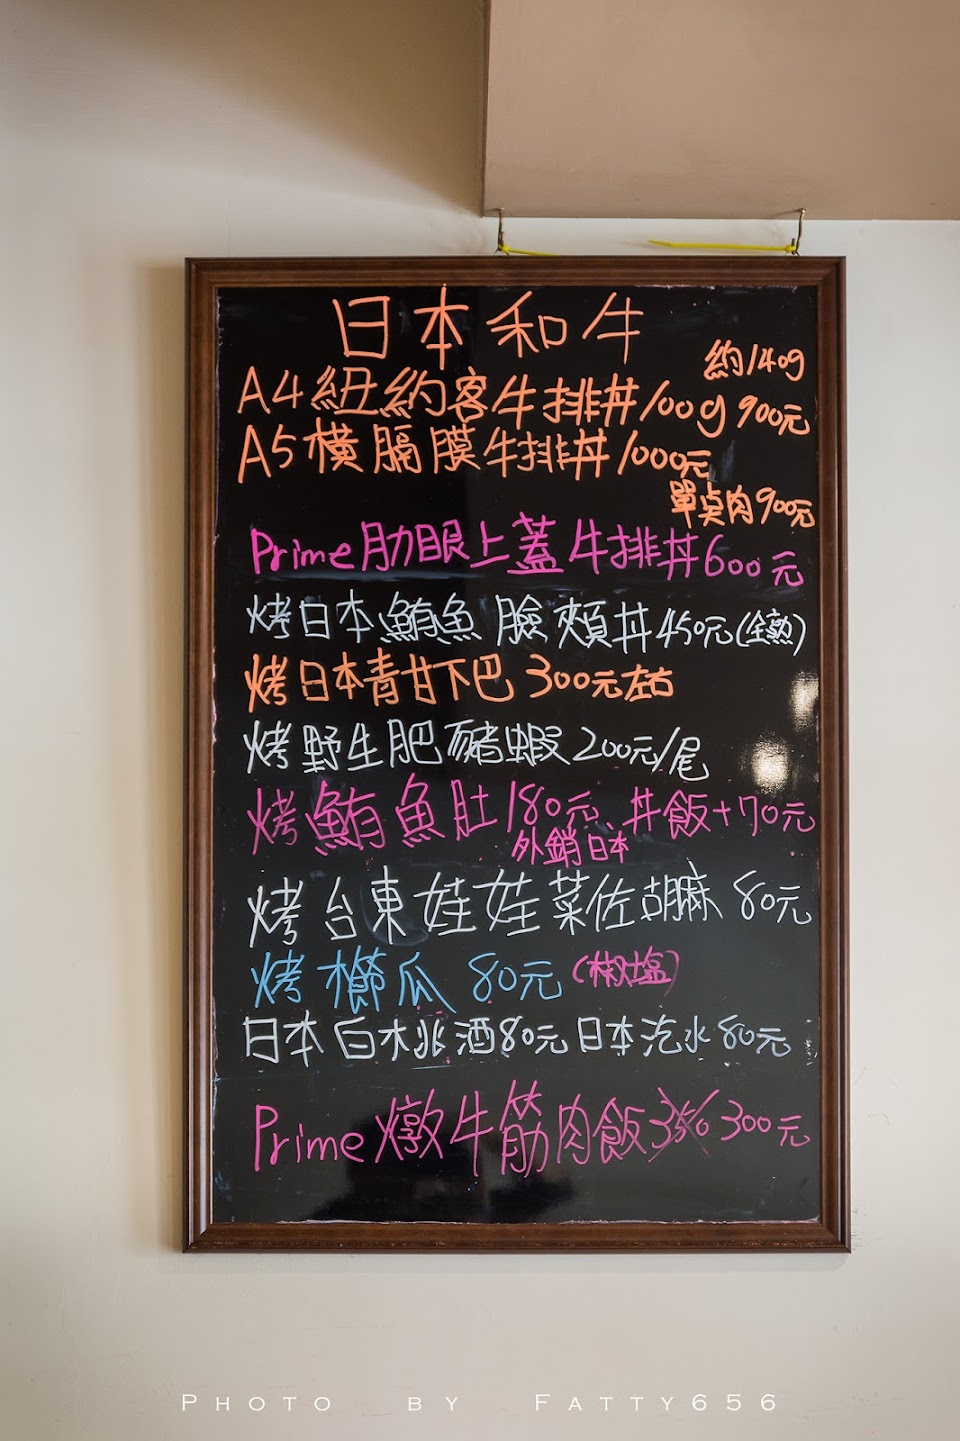 日本和牛
約140g
A4紐約客牛排丼100g900元
A5橫膈膜牛排丼1000元
單點肉900元
Prime肋眼上蓋牛排丼600元
烤日本鮪魚臉頰丼450元(全熟)
烤日本青甘下巴300元左右
烤野生肥豬蝦200元/尾
烤鮪魚肚180元、丼飯+70元
外銷日本
烤台東娃娃菜佐胡麻80元
烤櫛瓜80元(椒塩)
日本白木兆酒80元日本汽水80元
Prime燉牛筋肉飯350300元
PHOTO BY FATTY656